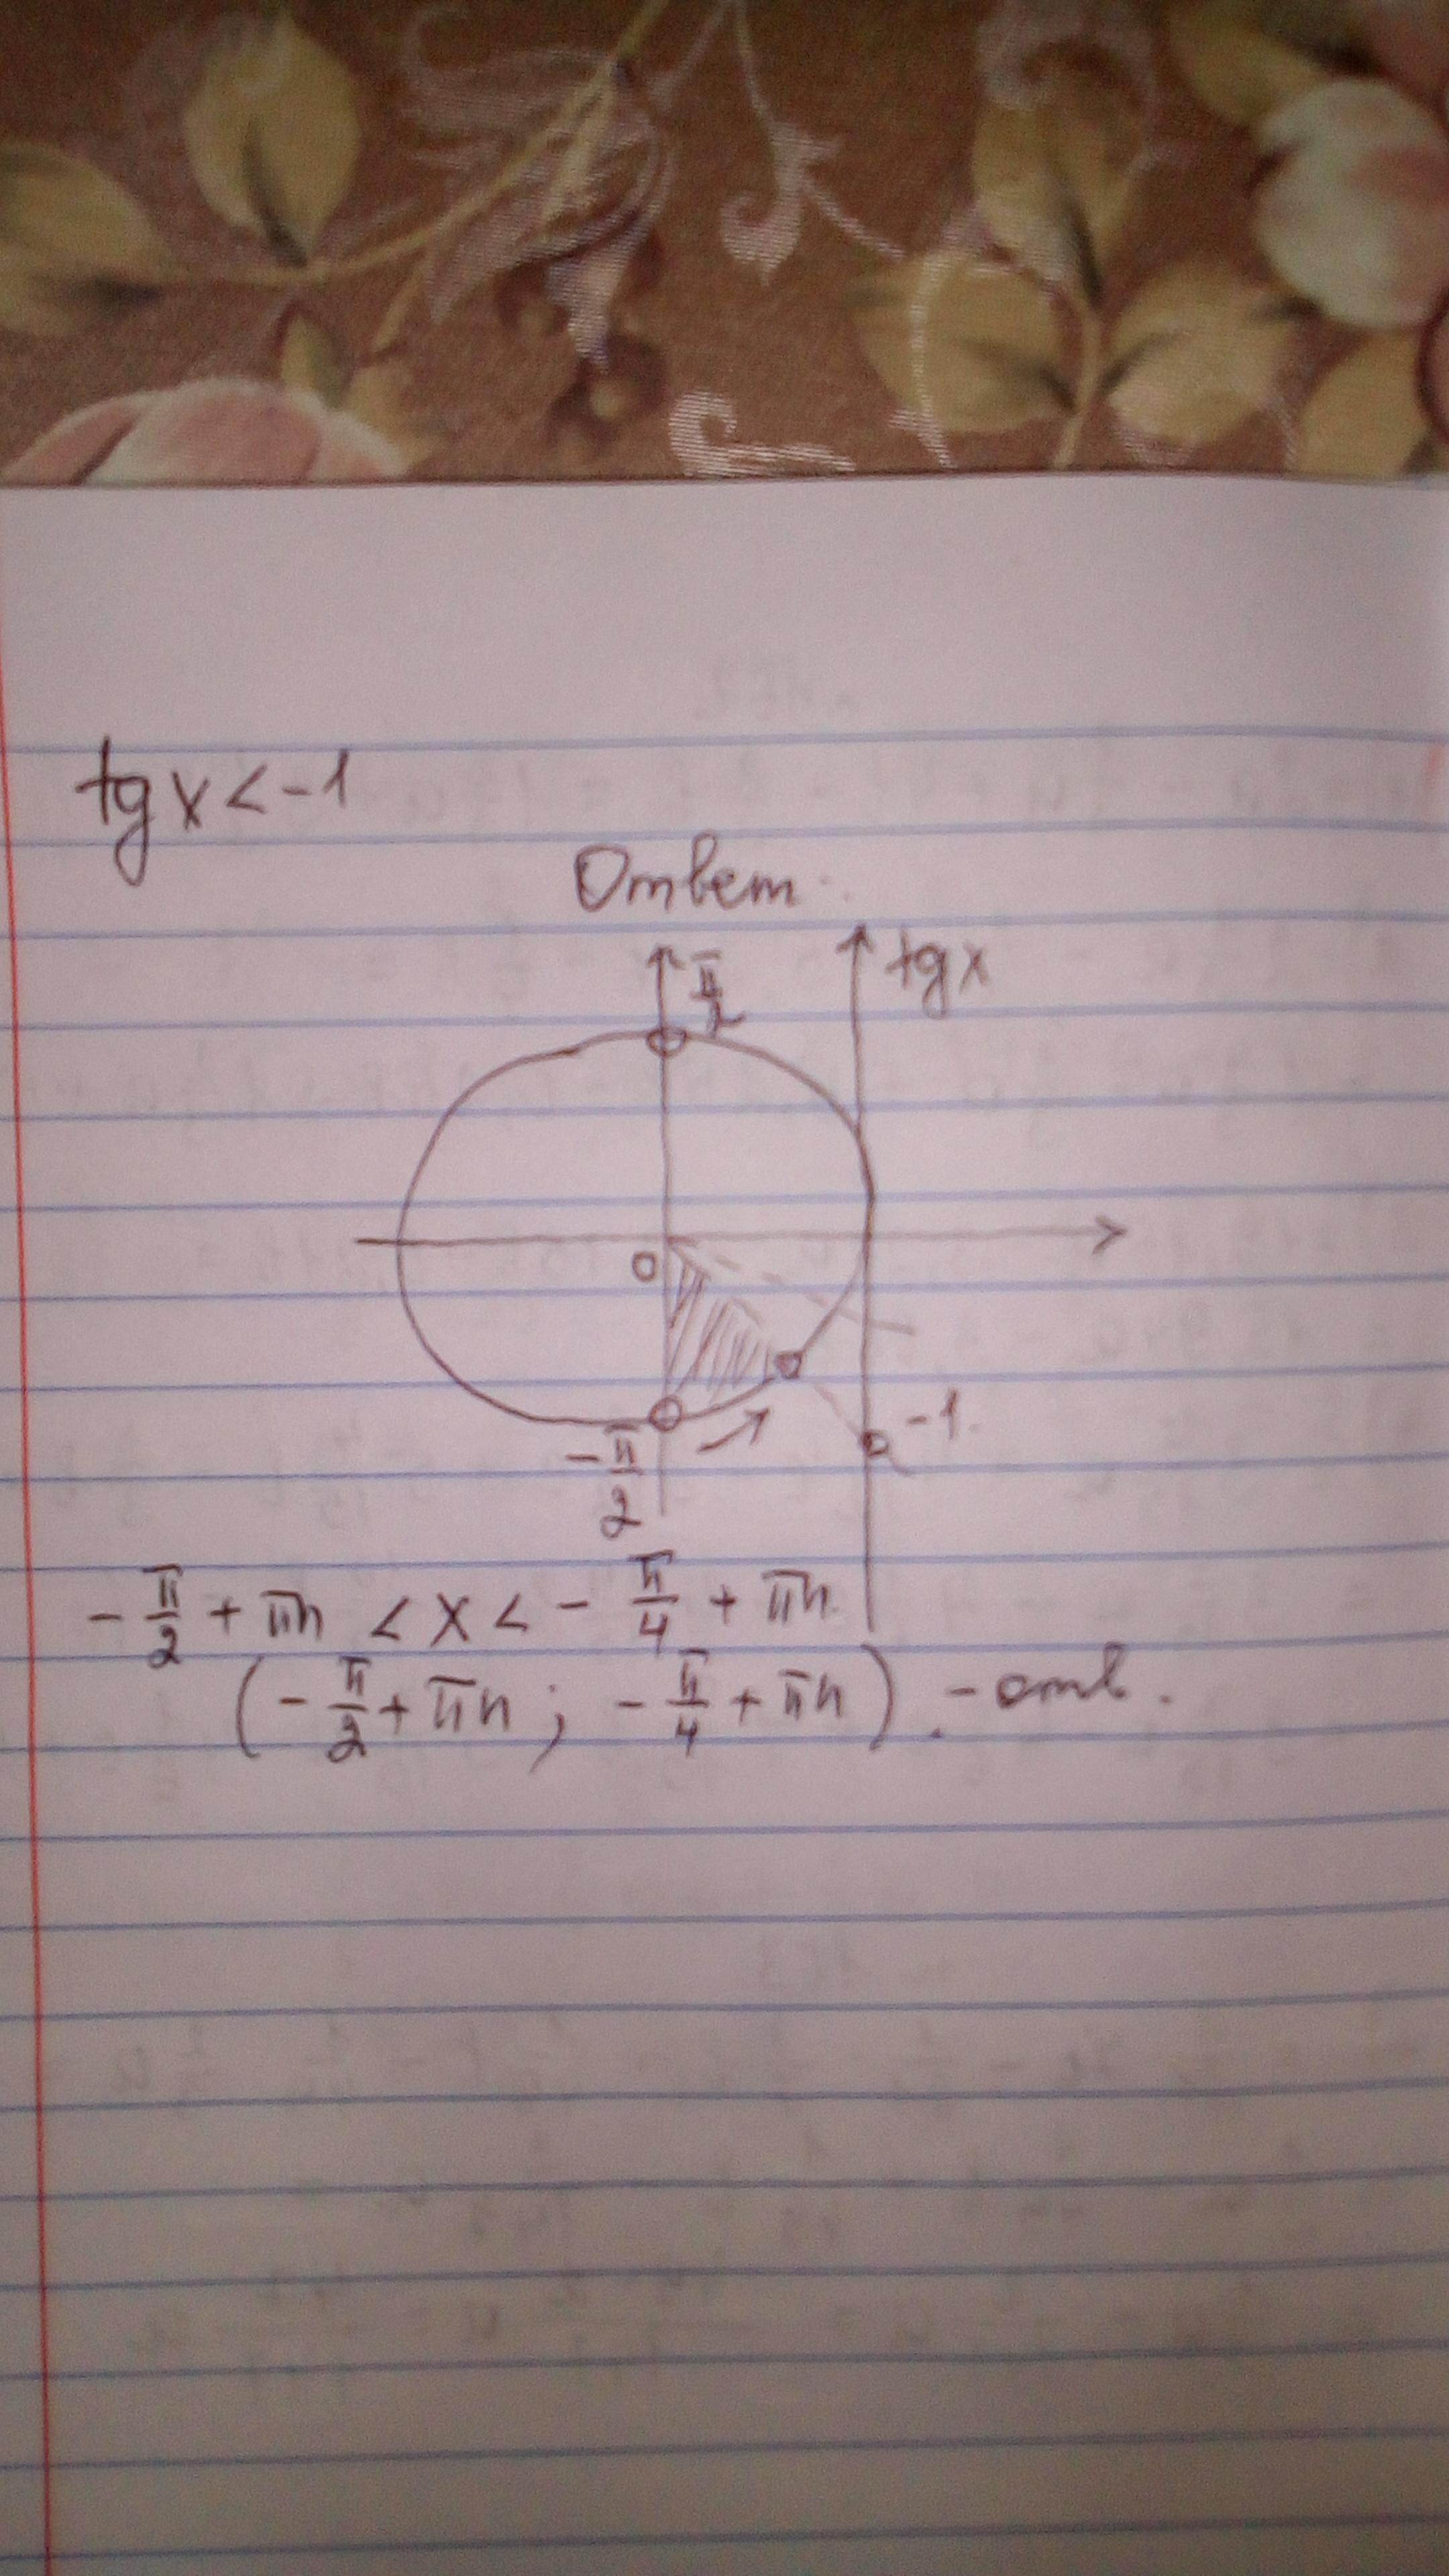 tg x < -1
Ответ:
π/2
tg x
0
-1
-π/2
-π/2 + πn < x < -π/4 + πn
(-π/2 + πn; -π/4 + πn). - отв.